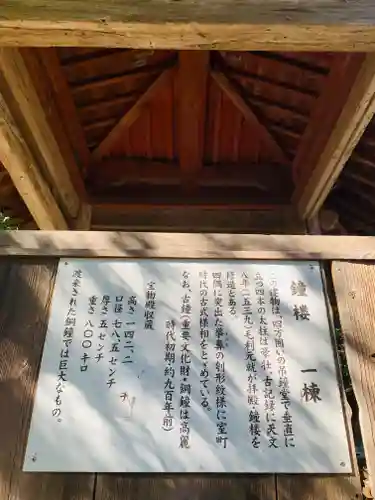 鐘楼　一棟
この建物は、四方囲いの吊鐘堂で垂直に
立つ四本の太柱は豪壮、古記録に天文
八年（一五三九）毛利元就が拝殿、鐘楼を
修造とある。
四隅に突出た拳鼻の刳形紋様に室町
時代の古式様相をとどめている。
なお、古鐘（重要文化財・銅鐘は高麗
時代初期約九百年前）
宝物殿収蔵
高さ一四二、二センチ
口径七八、五センチ
厚さ五センチ
重さ八〇〇キロ
渡来された銅鐘では巨大なもの。